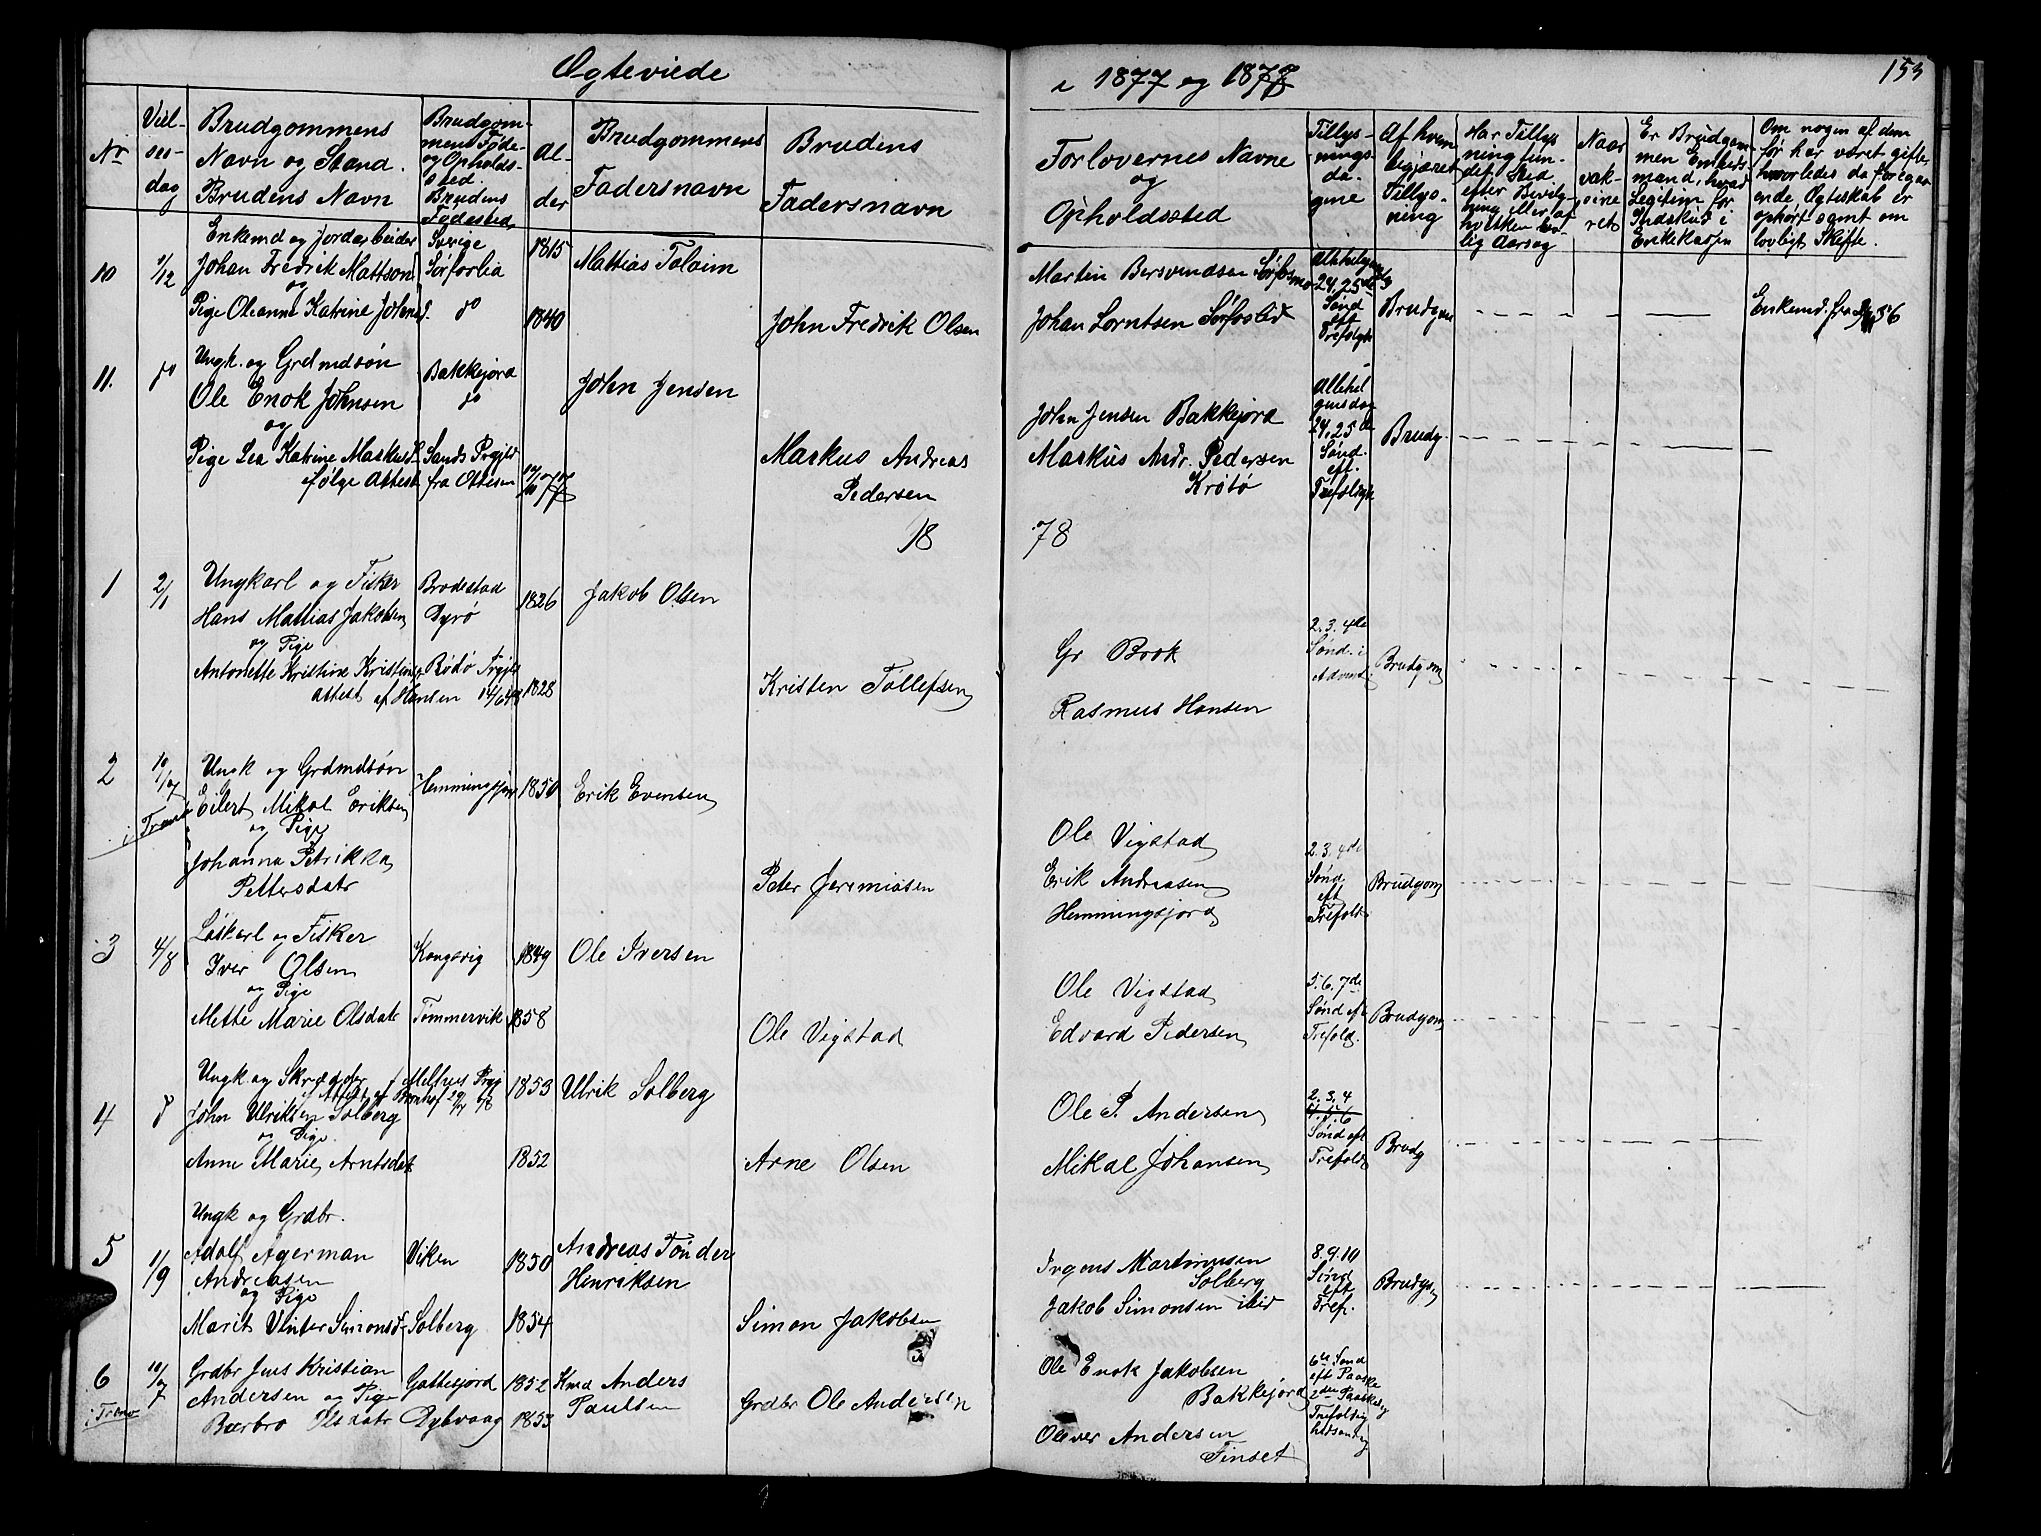 Ægteviede
i 1877 og 1878
153
No
Viel-
ses-
dag
Brudgommens
Navn og Stand.
Brudens Navn
Brudgom-
mens Føde-
og Opholds-
sted.
Brudens
Fødested
Al-
der
Brudgommens
Fadersnavn
Brudens
Fadersnavn
Forlovernes Navne
og
Opholdssted
Tillys-
nings-
da-
gene
Af hvem
begjæret
Tillys-
ning
Har Tillys
ning fun-
det Sted
efter Bevilg-
ning eller af
hvilken lov-
lig Aarsag
Naar
vak-
sine
ret
Er Brudgom-
men Enkeds-
mand, hvad
Legitim for
Indskud i
Enkekassen
Om nogen af dem
før har været gifte,
hvorledes da foregaa
ende Ægteskab er
ophørt samt om
lovligt Skifte.
10
1/12
Enkemd og Jordarbeider
Johan Fredrik Mattson
og
Pige Oleanna Katrine Johns d.
Sverige
Sørforlia
do
1815
1840
Mattias Tolaim
John Fredrik Olsen
Martin Bersvendsen Sørfosmo
Johan Lorntsen Sørfoslid
24, 25de
Sønd
eft
Trefoldgh
Brudgom
Enkemd. fra
11.
do
Ungk. og Grdmdsøn
Ole Enok Johnsen
og
Pige Lea Katrine Markusd
ifølge Attest
Bakkejord
do
Sands Prgjld
fra Ottesen
John Jensen
Markus Andreas
Pedersen
John Jensen Bakkejord
Markus Andr. Pedersen
Krøtø
Allehel
gensdag
24, 25de
Sønd.
eft.
Trefoldigh
Brudg.
18 78
1
2/1
Ungkarl og Fisker
Hans Mattias Jakobsen
og Pige
Antonette Kristine Kristensd
attest af Hansen 14/6 48
Brodestad
Dyrø
Bodø Prgjld
1826
1828
Jakob Olsen
Kristen Tollefsen
Gr Brok
Rasmus Hansen
2. 3. 4de
Sønd. i
Advent
Brudgom
2
10/7
i Tranø
Ungk og Grdmdsøn
Eilert Mikal Eriksen
og Pige
Johanna Petrikka
Pettersdatr
Hemmingsjord
1850
Erik Evensen
Peter Jeremiasen
Ole Vigstad
Erik Andreasen
Hemmingsjord
2. 3. 4de
Sønd
eft
Trefold.
Brudgom
3
4/8
Løskarl og Fisker
Iver Olsen
og Pige
Mette Marie Olsdatr
Kongsvig
Tømmervik
1849
1858
Ole Iversen
Ole Vigstad
Ole Vigstad
Edvard Pedersen
5. 6. 7de
Sønd eft
Trefold.
Brudgom
4
do
Ungk og Skrædder
John Ulriksen Solberg
og Pige.
Anne Marie Arntsdat
Melhus Prgj
1853
1852
Ulrik Solberg
Arne Olsen
Ole P. Andersen
Mikal Johansen
2. 3. 4
4. 5. 6
Sønd eft
Trefold
Brudg
5
1/9
Ungk og Grdbr.
Adolf Agerman
Andreasen
og Pige
Marit Vinter Simonsd
Viken
Solberg
1850
1854
Andreas Tønder
Henriksen
Simon Jakobsen
Ingens Martinusen
Solberg
Jakob Simonsen ibid
8. 9. 10
Sønd
eft
Tref.
Brudgom
6
i Tranø
10/7
Grdbr Jens Kristian
Andersen og Pige
Barbro Olsdatr
Gottesjord
Dybvaag
1852
1853
Kmd Anders
Paulsen
Grdbr Ole Andersen
Ole Enok Jakobsen
Bakkejord
Oliver Andersen
Finset
6te Sønd
eft Paaske
2den Paaskedg
Trefoldig
hedsøndag